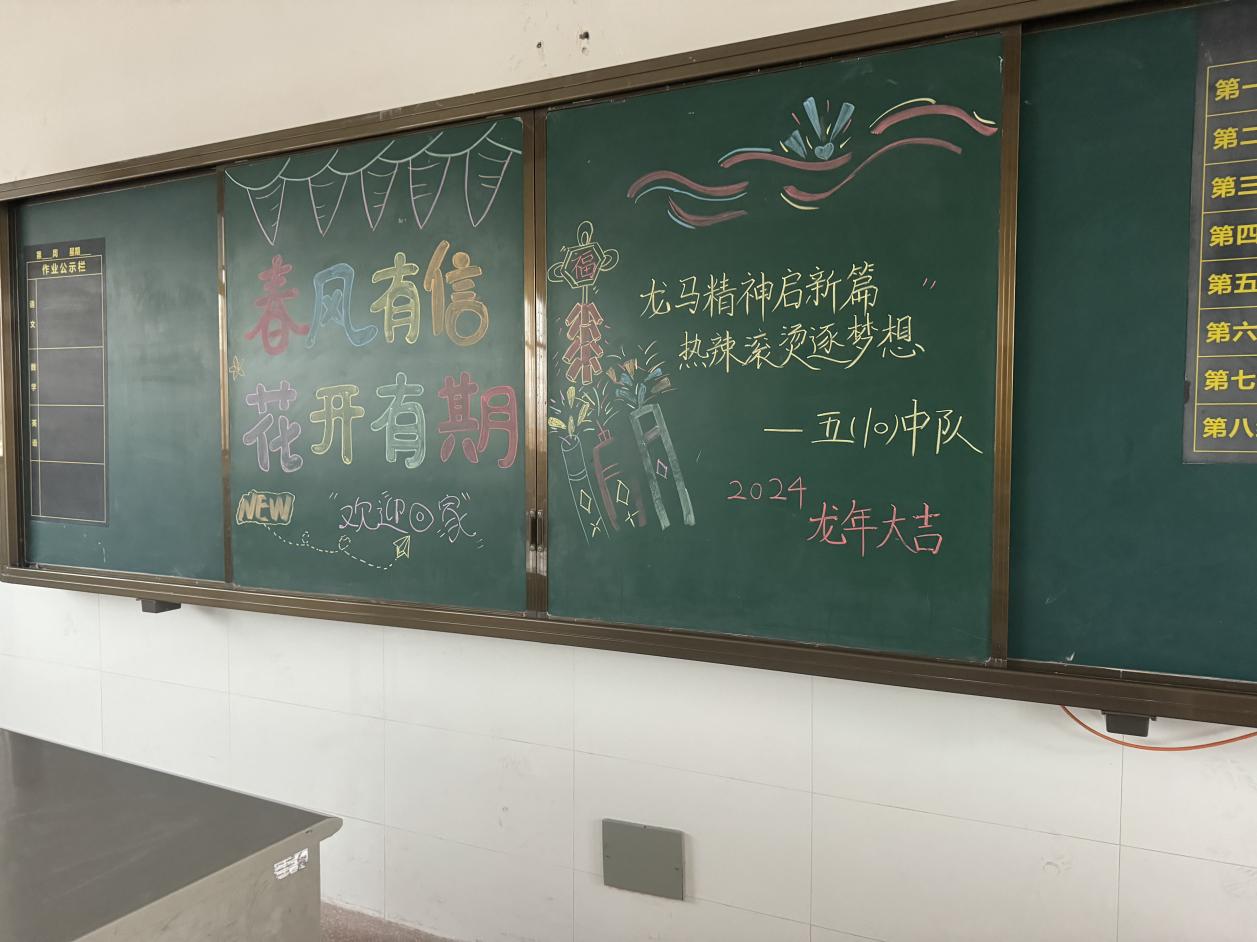 第 周 星期
作业公示栏
语文
数学
英语
春风有信
花开有期
NEW
"欢迎回家"
福
龙马精神启新篇
热辣滚烫逐梦想
—五(10)中队
2024
龙年大吉
第一
第二
第三
第四
第五
第六
第七
第八